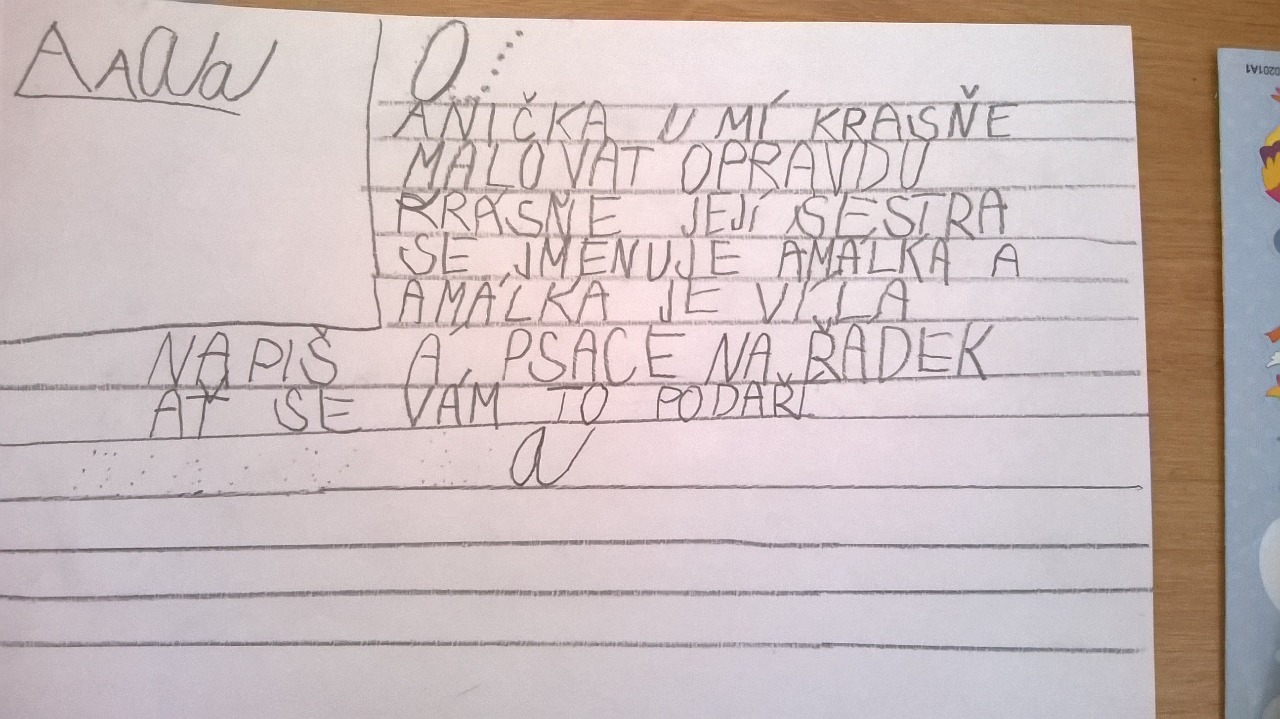 A A a a
ANIČKA U MÍ KRASŇE
MALOVAT OPRAVDU
KRÁSŇE JEJÍ SESTRA
SE JMENUJE AMÁLKA A
AMÁLKA JE VÍLA
NAPIŠ A PSACE NA ŘÁDEK
AŤ SE VÁM TO PODAŘÍ
a
0201A1